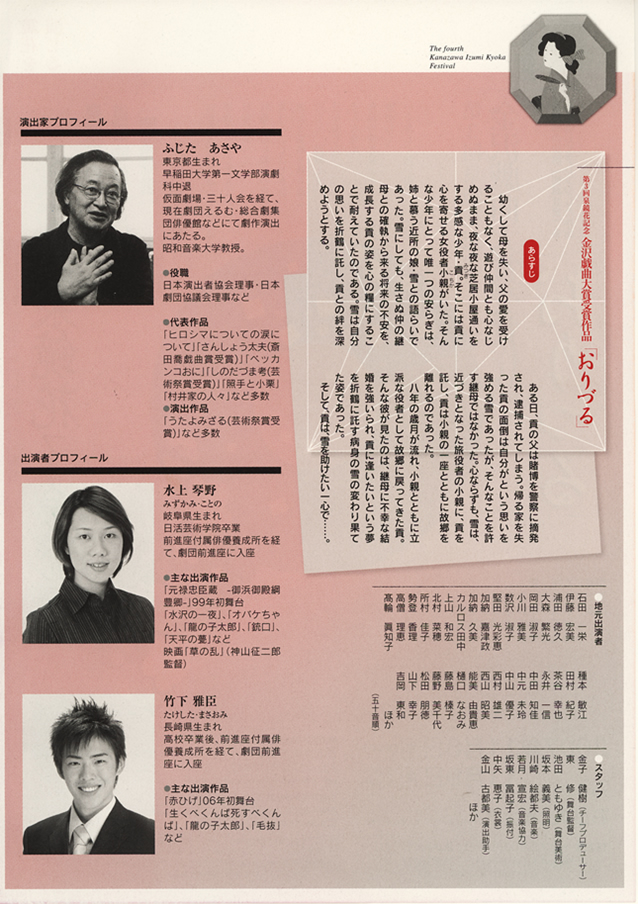 The fourth
Kanazawa Izumi Kyoka
Festival
第3回泉鏡花記念 金沢戯曲大賞受賞作品「おりづる」
あらすじ
幼くして母を失い、父の愛を受け
ることもなく、遊び仲間とも心なじ
めぬまま、夜な夜な芝居小屋通いを
する多感な少年・貢。そこには貢に
心を寄せる女役者小親がいた。そん
な少年にとって唯一つの安らぎは、
姉と慕う近所の娘・雪との語らいで
あった。雪にしても、生さぬ仲の継
母との確執から来る将来の不安を、
成長する貢の姿を心の糧にするこ
とで耐えていたのである。雪は自分
の思いを折鶴に託し、貢との絆を深
めようとする。
ある日、貢の父は賭博を警察に摘発
され、逮捕されてしまう。帰る家を失
った貢の面倒は自分がという思いを
強める雪であったが、そんなことを許
す継母ではなかった。心ならずも、雪は、
近づきとなった旅役者の小親に、貢を
託し、貢は小親の一座とともに故郷を
離れるのであった。
八年の歳月が流れ、小親とともに立
派な役者として故郷に戻ってきた貢。
そんな彼が見たのは、継母に不幸な結
婚を強いられ、貢に逢いたいという夢
を折鶴に託す病身の雪の変わり果て
た姿であった。
そして、貢は、雪を助けたい一心で……。
演出家プロフィール
ふじた あさや
東京都生まれ
早稲田大学第一文学部演劇
科中退
仮面劇場・三十人会を経て、
現在劇団えるむ・総合劇集
団俳優館などにて劇作演出
にあたる。
昭和音楽大学教授。
●役職
日本演出者協会理事・日本
劇団協議会理事など
●代表作品
「ヒロシマについての涙に
ついて」「さんしょう太夫(斎
田喬戯曲賞受賞)」「ベッカ
ンコおに」「しのだづま考(芸
術祭賞受賞)」「照手と小栗」
「村井家の人々」など多数
●演出作品
「うたよみざる(芸術祭賞受
賞)」など多数
出演者プロフィール
水上 琴野
みずかみ・ことの
岐阜県生まれ
日活芸術学院卒業
前進座付属俳優養成所を経
て、劇団前進座に入座
●主な出演作品
「元禄忠臣蔵 -御浜御殿綱
豊卿-」99年初舞台
「水沢の一夜」、「オバケちゃ
ん」、「龍の子太郎」、「銃口」、
「天平の甍」など
映画「草の乱」(神山征二郎
監督)
竹下 雅臣
たけした・まさおみ
長崎県生まれ
高校卒業後、前進座付属俳
優養成所を経て、劇団前進
座に入座
●主な出演作品
「赤ひげ」06年初舞台
「生くべくんば死すべくん
ば」、「龍の子太郎」、「毛抜」
など
●地元出演者
石田 一栄
伊藤 宏美
浦田 徳久
大森 繁光
岡田 淑子
小川 雅美
数沢 淑子
堅田 光彩恵
加納 嘉津政
加納 久美
カルロス田中
上山 和宏
北村 菜穂
所村 佳子
勢登 香理
高僧 理恵
髙輪 眞知子
種本 敏江
田村 紀子
茶谷 幸也
永井 一信
中田 知佳
中元 未玲
中山 優子
西村 雄二
西山 昭美
能美 由貴恵
樋口 なおみ
藤島 榛子
藤野 美千代
松田 朋徳
山下 幸子
吉岡 東和
ほか
(五十音順)
●スタッフ
金子 健樹(チーフプロデューサー)
東 修(舞台監督)
池田 ともゆき(舞台美術)
坂本 義美(照明)
川崎 絵都夫(音楽)
若月 宣宏(音楽協力)
坂東 冨起子(振付)
中矢 恵子(衣裳)
金山 古都美(演出助手)
ほか